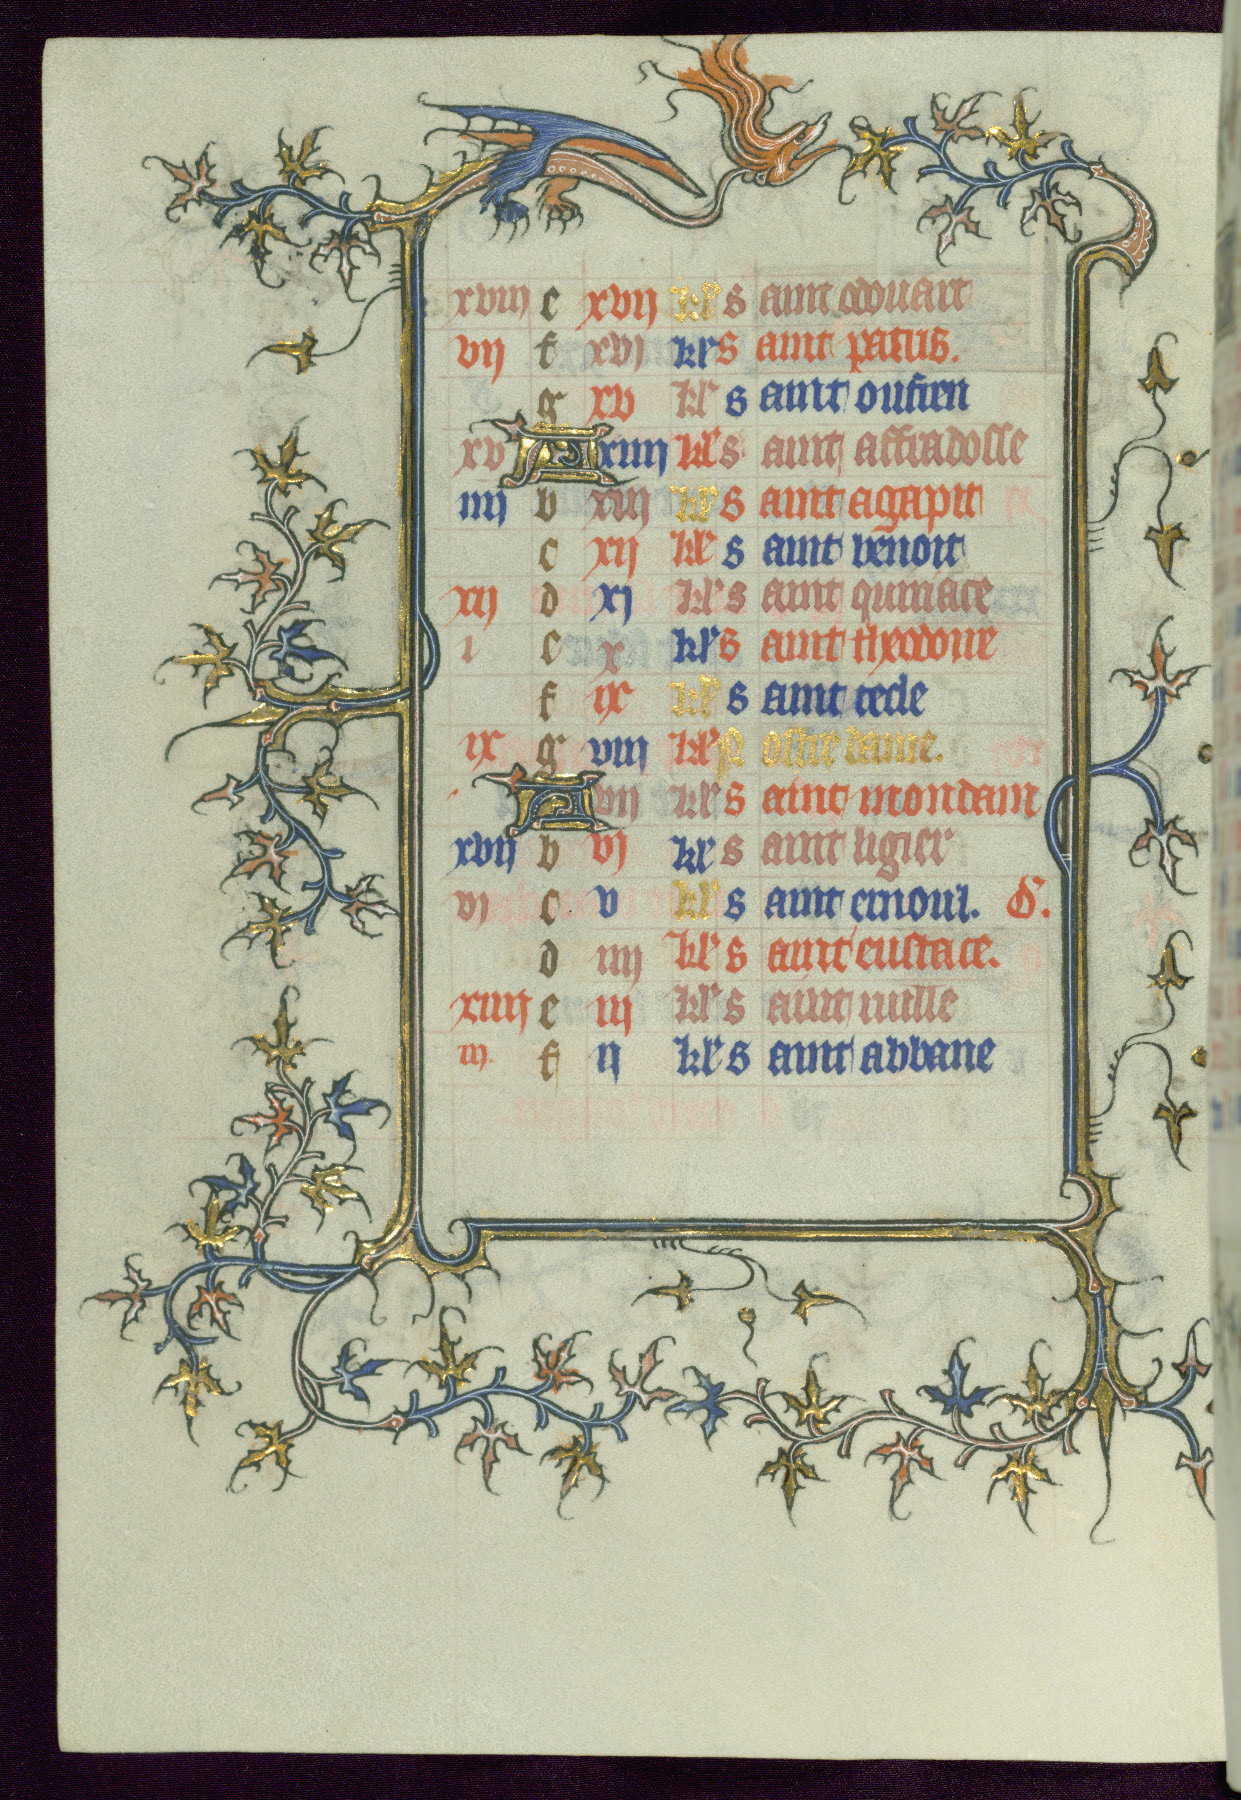 xviii c xvij kls s aint edouart
vij f xvj kls s aint patus.
g xv kls s aint oursien
xv A xiiij kls s aint
iiij b xiij kls s aint agapit
c xij kls s aint benoit
xij d xj kls s aint quiriace
i e x kls s aint theodore
f ix kls s aint tecle
ix g viij kls n ostre dame.
A vij kls s aint mondain
xvij b vj kls s aint ligier
vj c v kls s aint ernoul. D.
d iiij kls s aint eustace.
xiiij e iij kls s aint nulle
iij. f ij kls s aint abbane